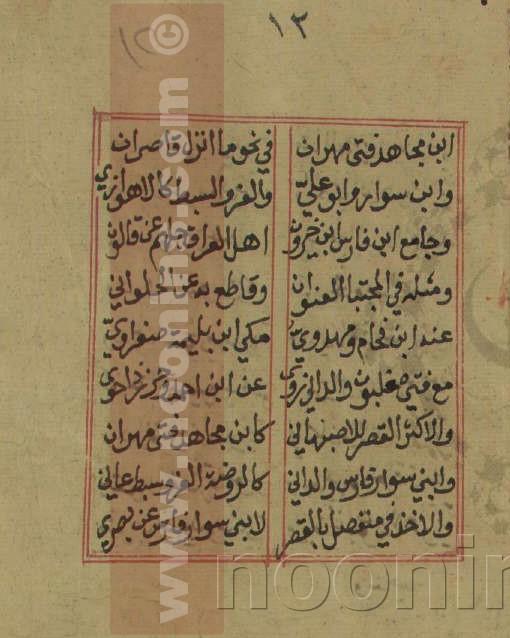 ١٣
ابن مجاهد فتى مهران في نحو ما انزل قاصران
وابن سوار وابو علي والغز والسبط كالاهوازي
وجامع ابن فارس ابن خيرون اهل العراق جلهم عن قالون
ومثله في المجتبا العنوان وقاطع به عن الحلواني
عند ابن فحام ومهدوي مكي ابن بليمة صفراوي
مع فتى غلبون والداني روى عن ابن احمد
والاكثر القصر للاصبهاني كابن مجاهد فتى مهران
وابني سوار فارس والداني كالروضة الغز وسبط عاني
والاخذ في منفصل بالقصر لابني سوار فارس عن بصري
www.noonin.com ©
noonin